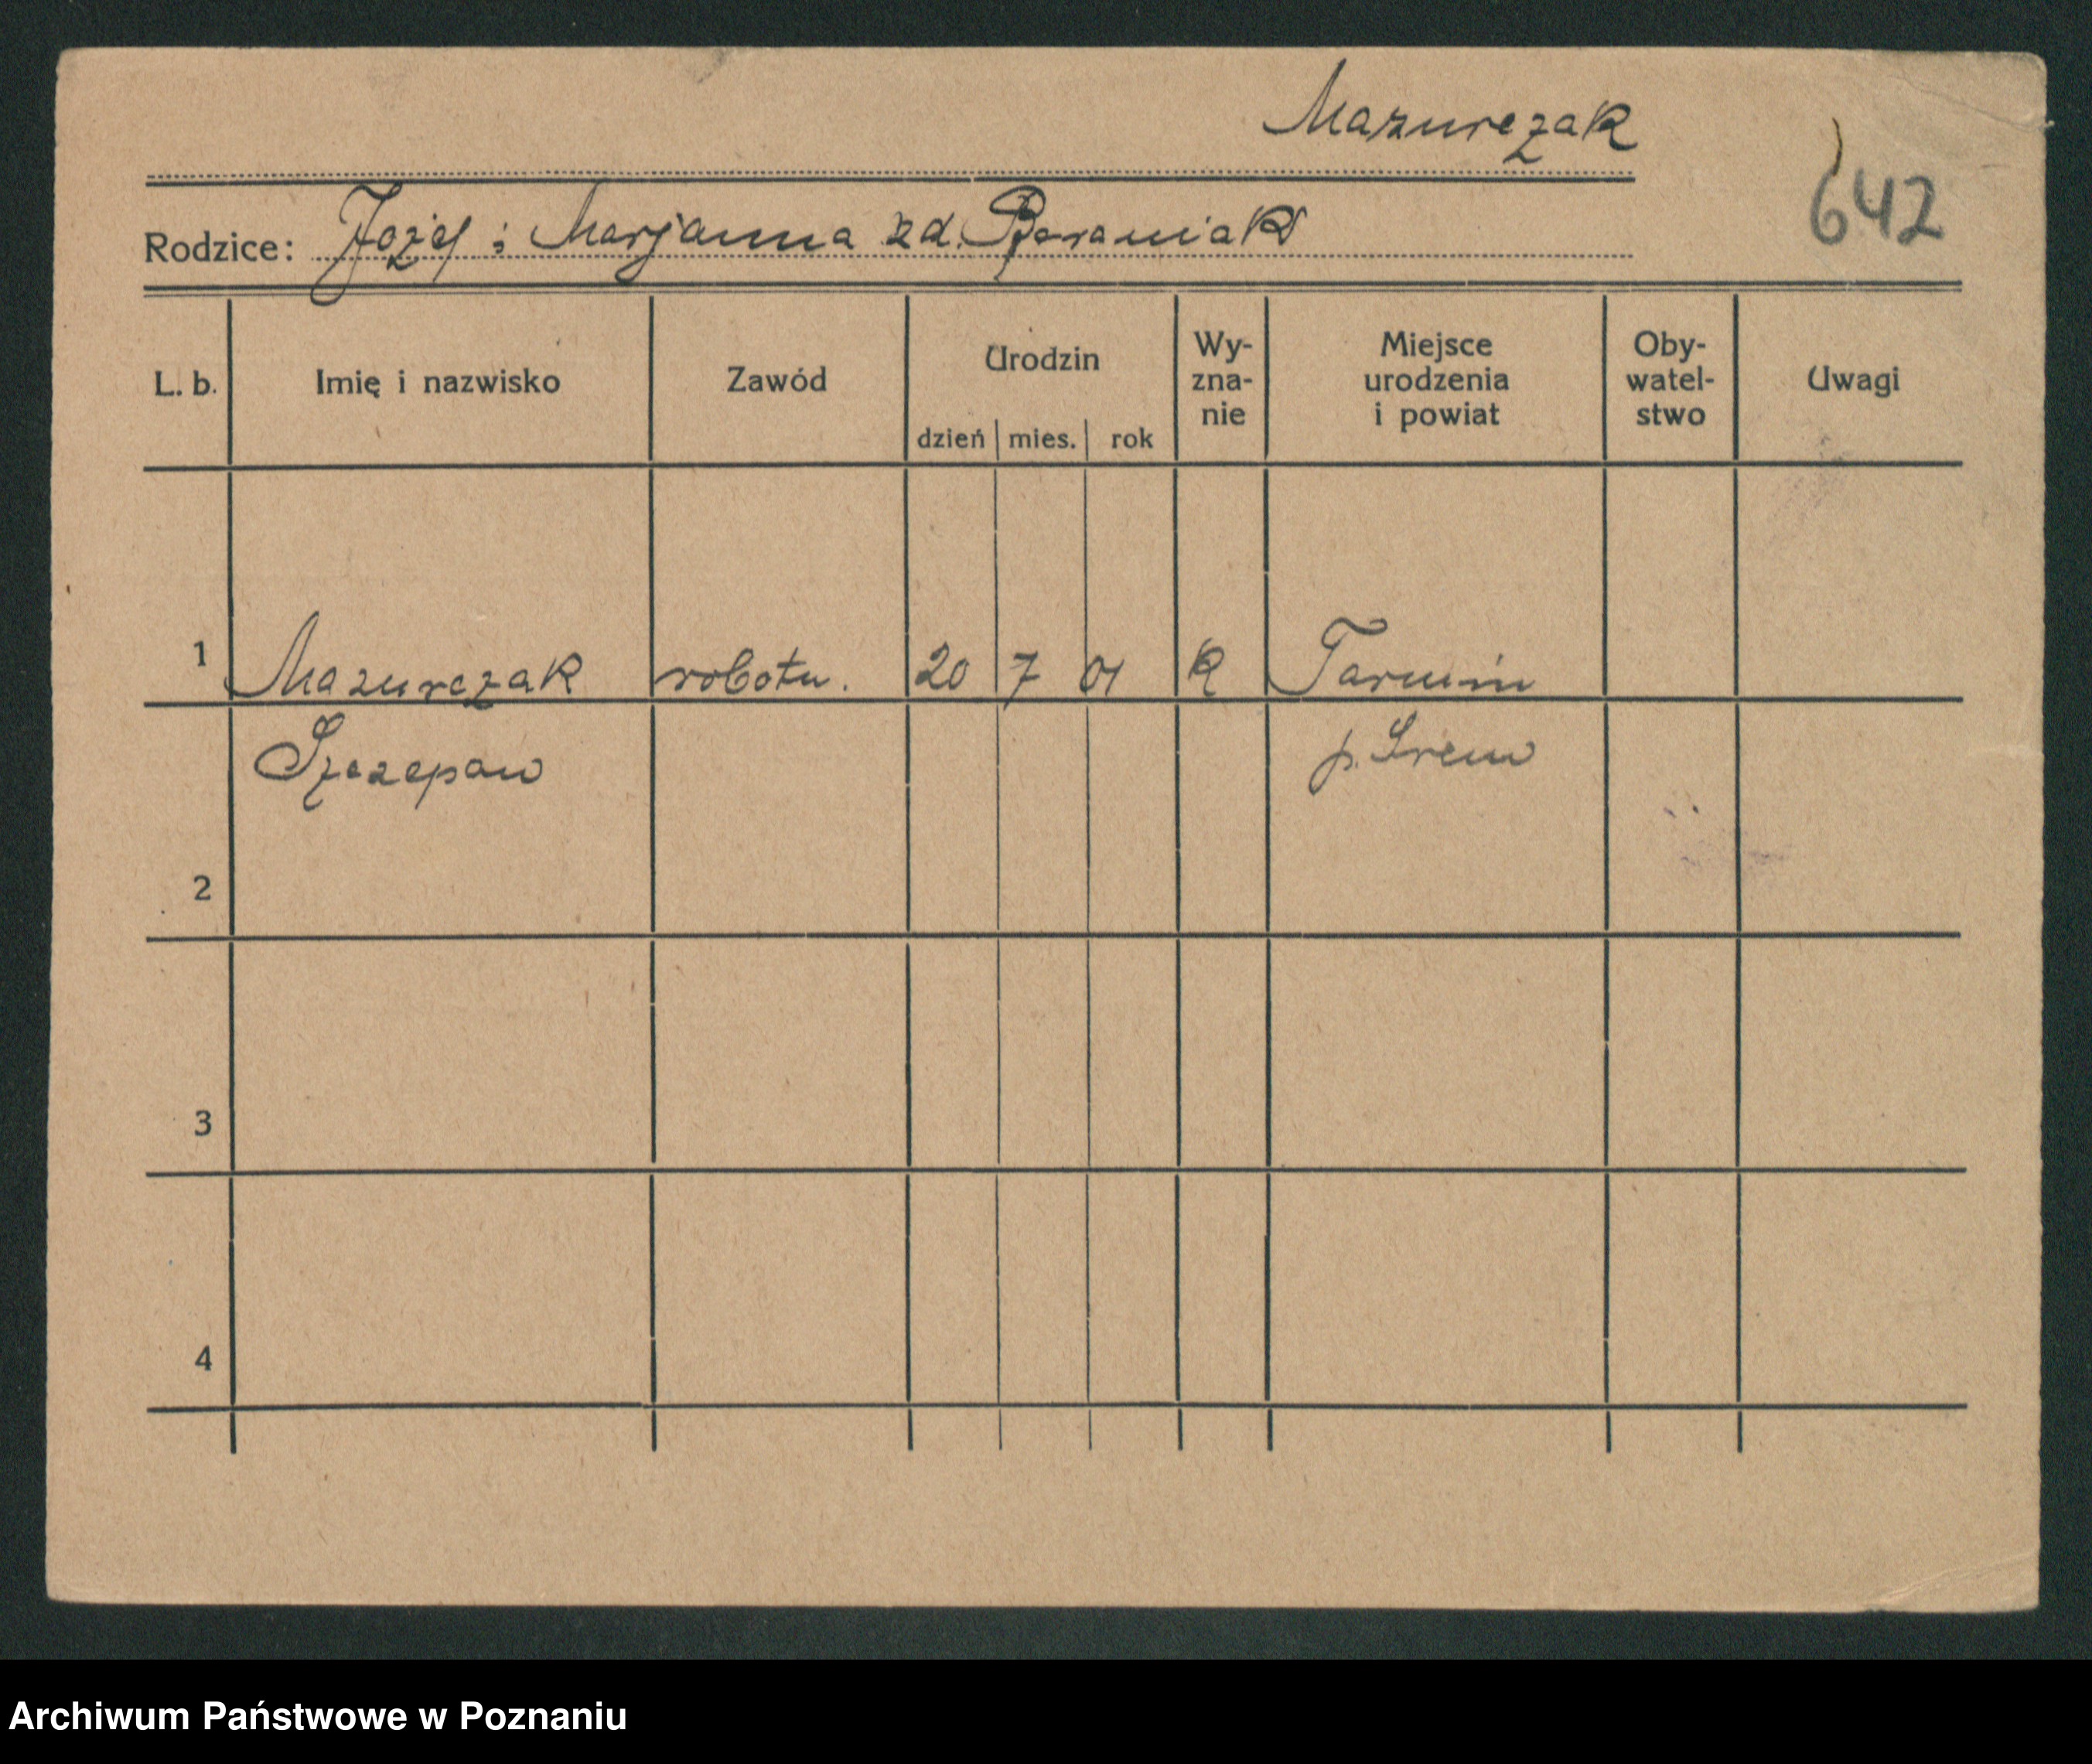 Mazurczak
642
Rodzice: Józef i Marjanna zd. Baraniak
L. b. Imię i nazwisko Zawód Urodzin dzień mies. rok Wy-zna-nie Miejsce urodzenia i powiat Oby-watel-stwo Uwagi
1 Mazurczak robotn. 20 7 01 k
Szczepan p. Śrem
2
3
4
Archiwum Państwowe w Poznaniu